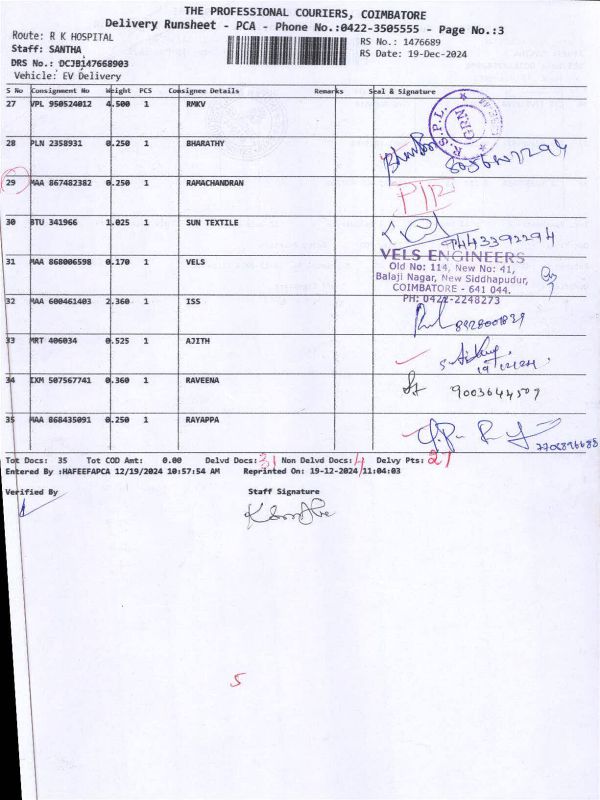 THE PROFESSIONAL COURIERS, COIMBATORE
Delivery Runsheet - PCA - Phone No.:0422-3505555 - Page No.:3
Route: R K HOSPITAL
RS No.: 1476689
Staff: SANTHA
RS Date: 19-Dec-2024
DRS No.: DCJB147668903
Vehicle: EV Delivery
S No Consignment No Weight PCS Consignee Details Remarks Seal & Signature
27 VPL 950524012 4.500 1 RMKV
R.S.P.L. GRN
28 PLN 2358931 0.250 1 BHARATHY
29 MAA 867482382 0.250 1 RAMACHANDRAN
30 BTU 341966 1.025 1 SUN TEXTILE 9443392294
31 MAA 868006598 0.170 1 VELS
VELS ENGINEERS
Old No: 114, New No: 41,
Balaji Nagar, New Siddhapudur,
COIMBATORE - 641 044.
PH: 0422-2248273
32 MAA 600461403 2.360 1 ISS
33 MRT 406034 0.525 1 AJITH
19/12/24
34 IXM 507567741 0.360 1 RAVEENA
35 MAA 868435091 0.250 1 RAYAPPA
Tot Docs: 35 Tot COD Amt: 0.00 Delvd Docs: 31 Non Delvd Docs: 4 Delvy Pts: 27
Entered By :HAFEEFAPCA 12/19/2024 10:57:54 AM Reprinted On: 19-12-2024 11:04:03
Verified By Staff Signature
5